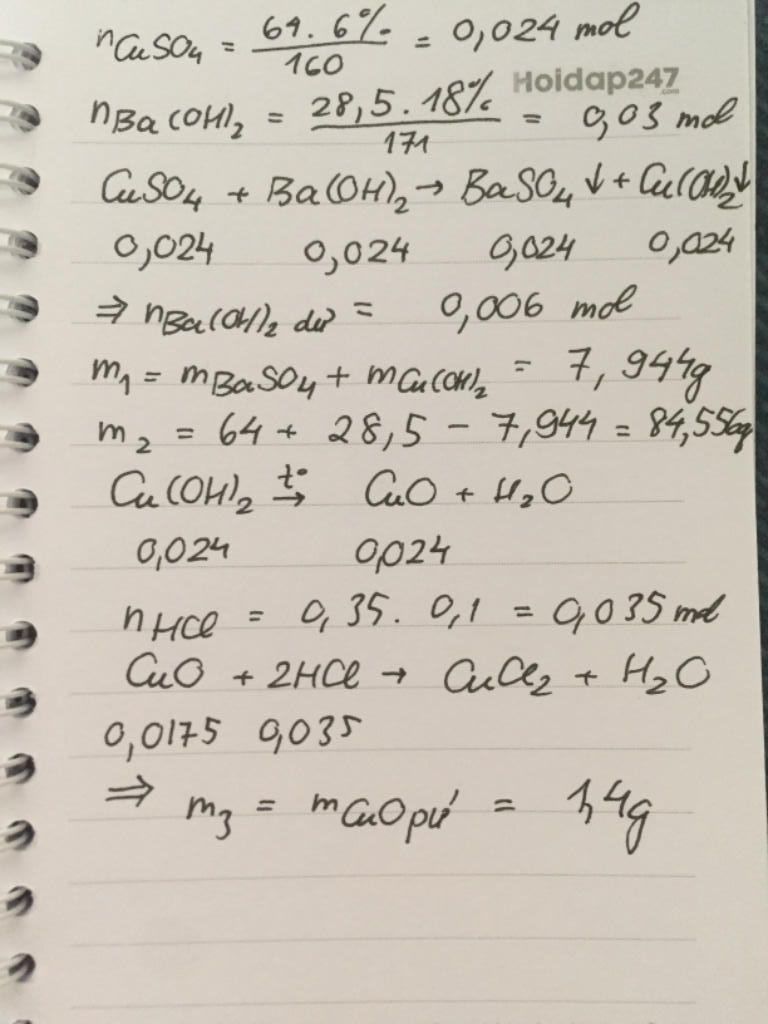 nCuSO4 = 64.6% / 160 = 0,024 mol
Hoidap247.com
nBa(OH)2 = 28,5.18% / 171 = 0,03 mol
CuSO4 + Ba(OH)2 → BaSO4↓ + Cu(OH)2↓
0,024 0,024 0,024 0,024
⇒ nBa(OH)2 dư = 0,006 mol
m1 = mBaSO4 + mCu(OH)2 = 7,944g
m2 = 64 + 28,5 - 7,944 = 84,556g
Cu(OH)2 t°→ CuO + H2O
0,024 0,024
nHCl = 0,35. 0,1 = 0,035 mol
CuO + 2HCl → CuCl2 + H2O
0,0175 0,035
⇒ m3 = mCuO pứ = 1,4g